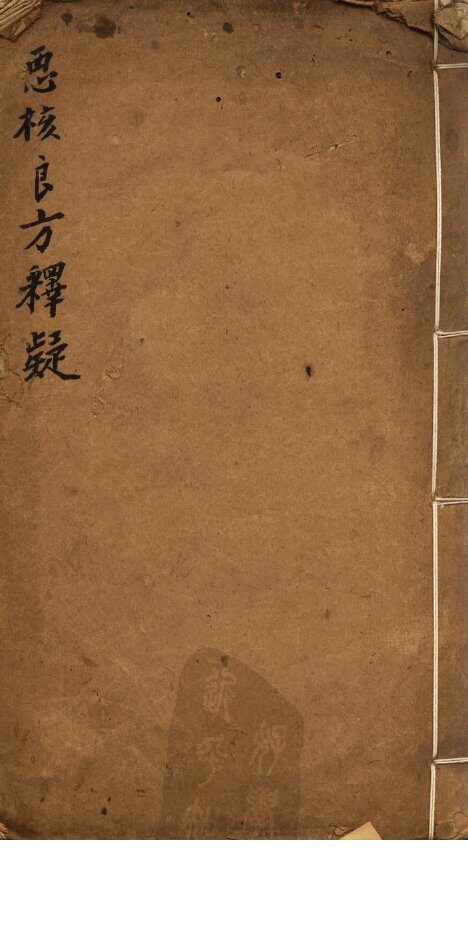 惡核良方釋疑